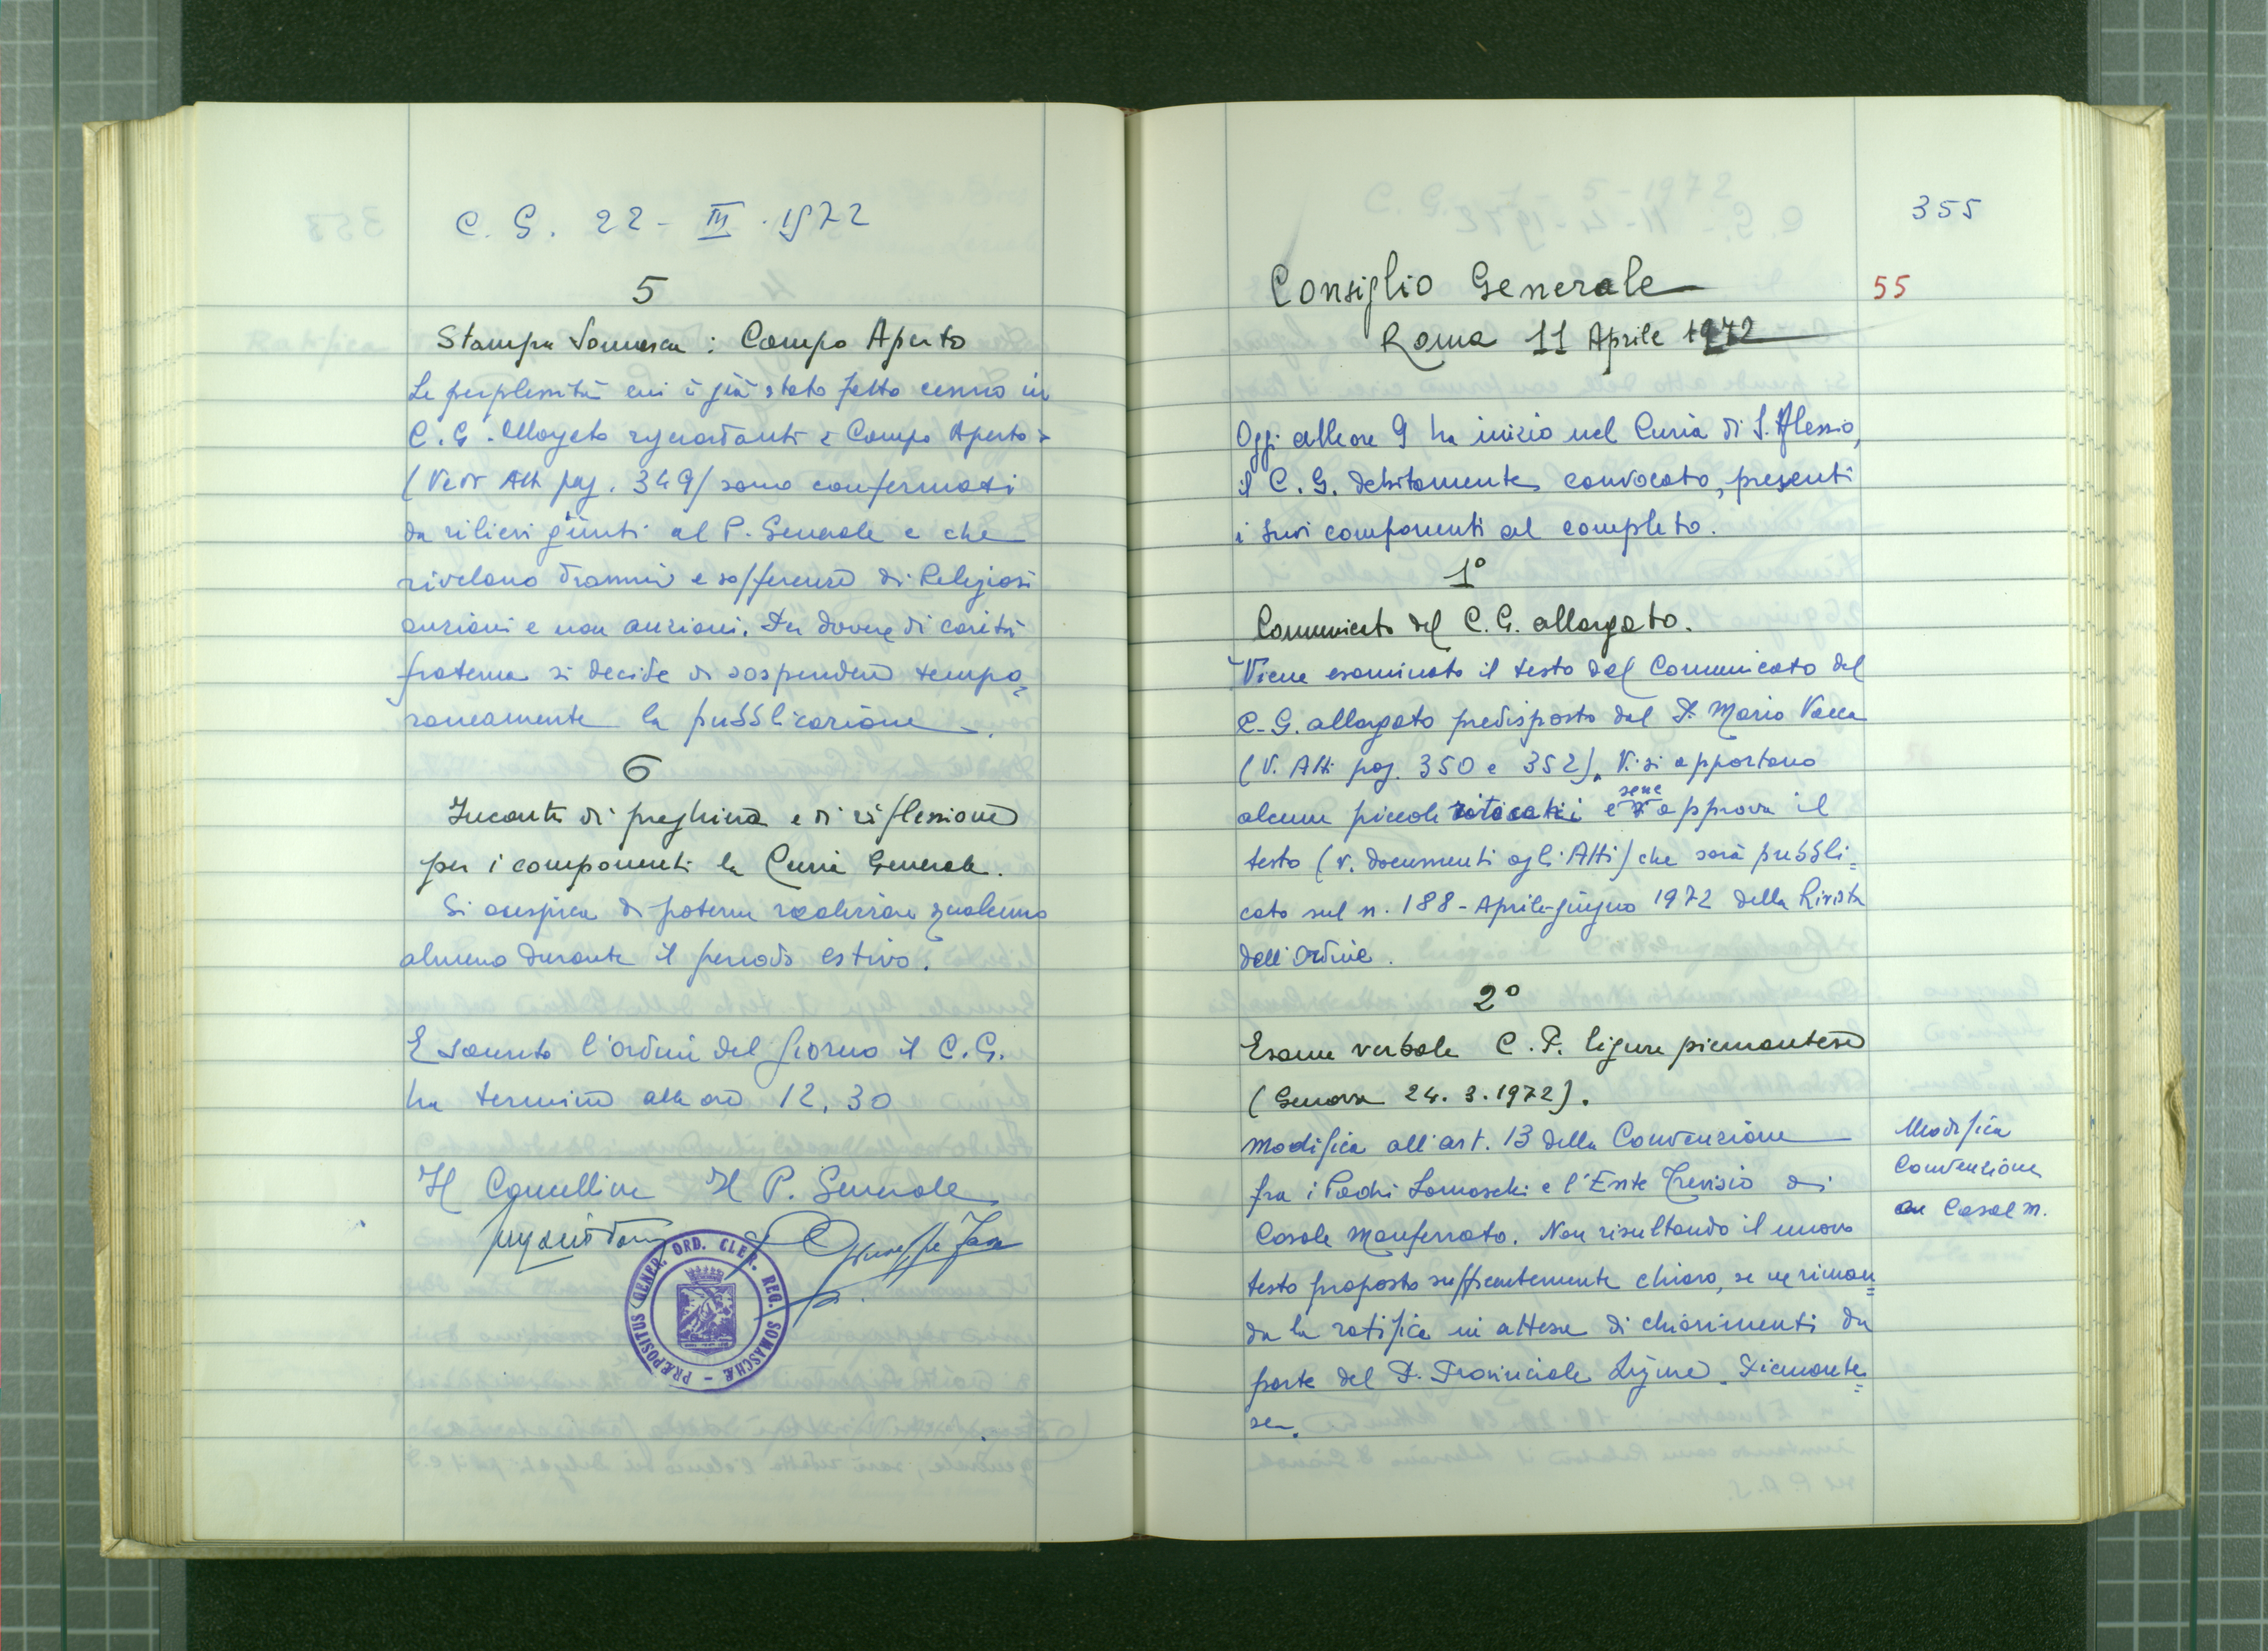 C. G. 22 - III . 1972
5
Stampa Somasca : Campo Aperto
Le perplessità cui è già stato fatto cenno in
C. G. Allargato riguardanti « Campo Aperto »
(Vedi Atti pag. 349) sono confermati
da rilievi giunti al P. Generale e che
rivelano drammi e sofferenze di Religiosi
anziani e non anziani. Per dovere di carità
fraterna si decide di sospendere tempo=
raneamente la pubblicazione.
6
Incontri di preghiera e di riflessione
per i componenti la Curia Generale.
Si auspica di poterne realizzare qualcuno
almeno durante il periodo estivo.
Esaurito l'ordine del giorno il C. G.
ha termine alle ore 12,30
Il Cancelliere Il P. Generale
PRÆPOSITUS GENER. ORD. CLER. REG. SOMASCHÆ -
355
Consiglio Generale
55
Roma 11 Aprile 1972
Oggi alle ore 9 ha inizio nel Curia di S. Alessio,
il C. G. debitamente convocato, presenti
i suoi componenti al completo.
1°
Comunicato del C. G. allargato.
Viene esaminato il testo del Comunicato del
C. G. allargato predisposto dal P. Mario Vacca
(V. Atti pag. 350 e 352). Vi si apportano
alcuni piccoli ritocchi e se ne approva il
testo (v. documenti agli Atti) che sarà pubbli=
cato sul n. 188 - Aprile-giugno 1972 della Rivista
dell'Ordine.
2°
Esame verbale C. P. ligure piemontese
(Genova 24. 3. 1972).
Modifica all'art. 13 della Convenzione
fra i Padri Somaschi e l'Ente Trevisio di
Casale Monferrato. Non risultando il nuovo
testo proposto sufficientemente chiaro, se ne riman=
da la ratifica in attesa di chiarimenti da
parte del P. Provinciale Ligure - Piemonte=
se.
Modifica
Convenzione
Casal M.